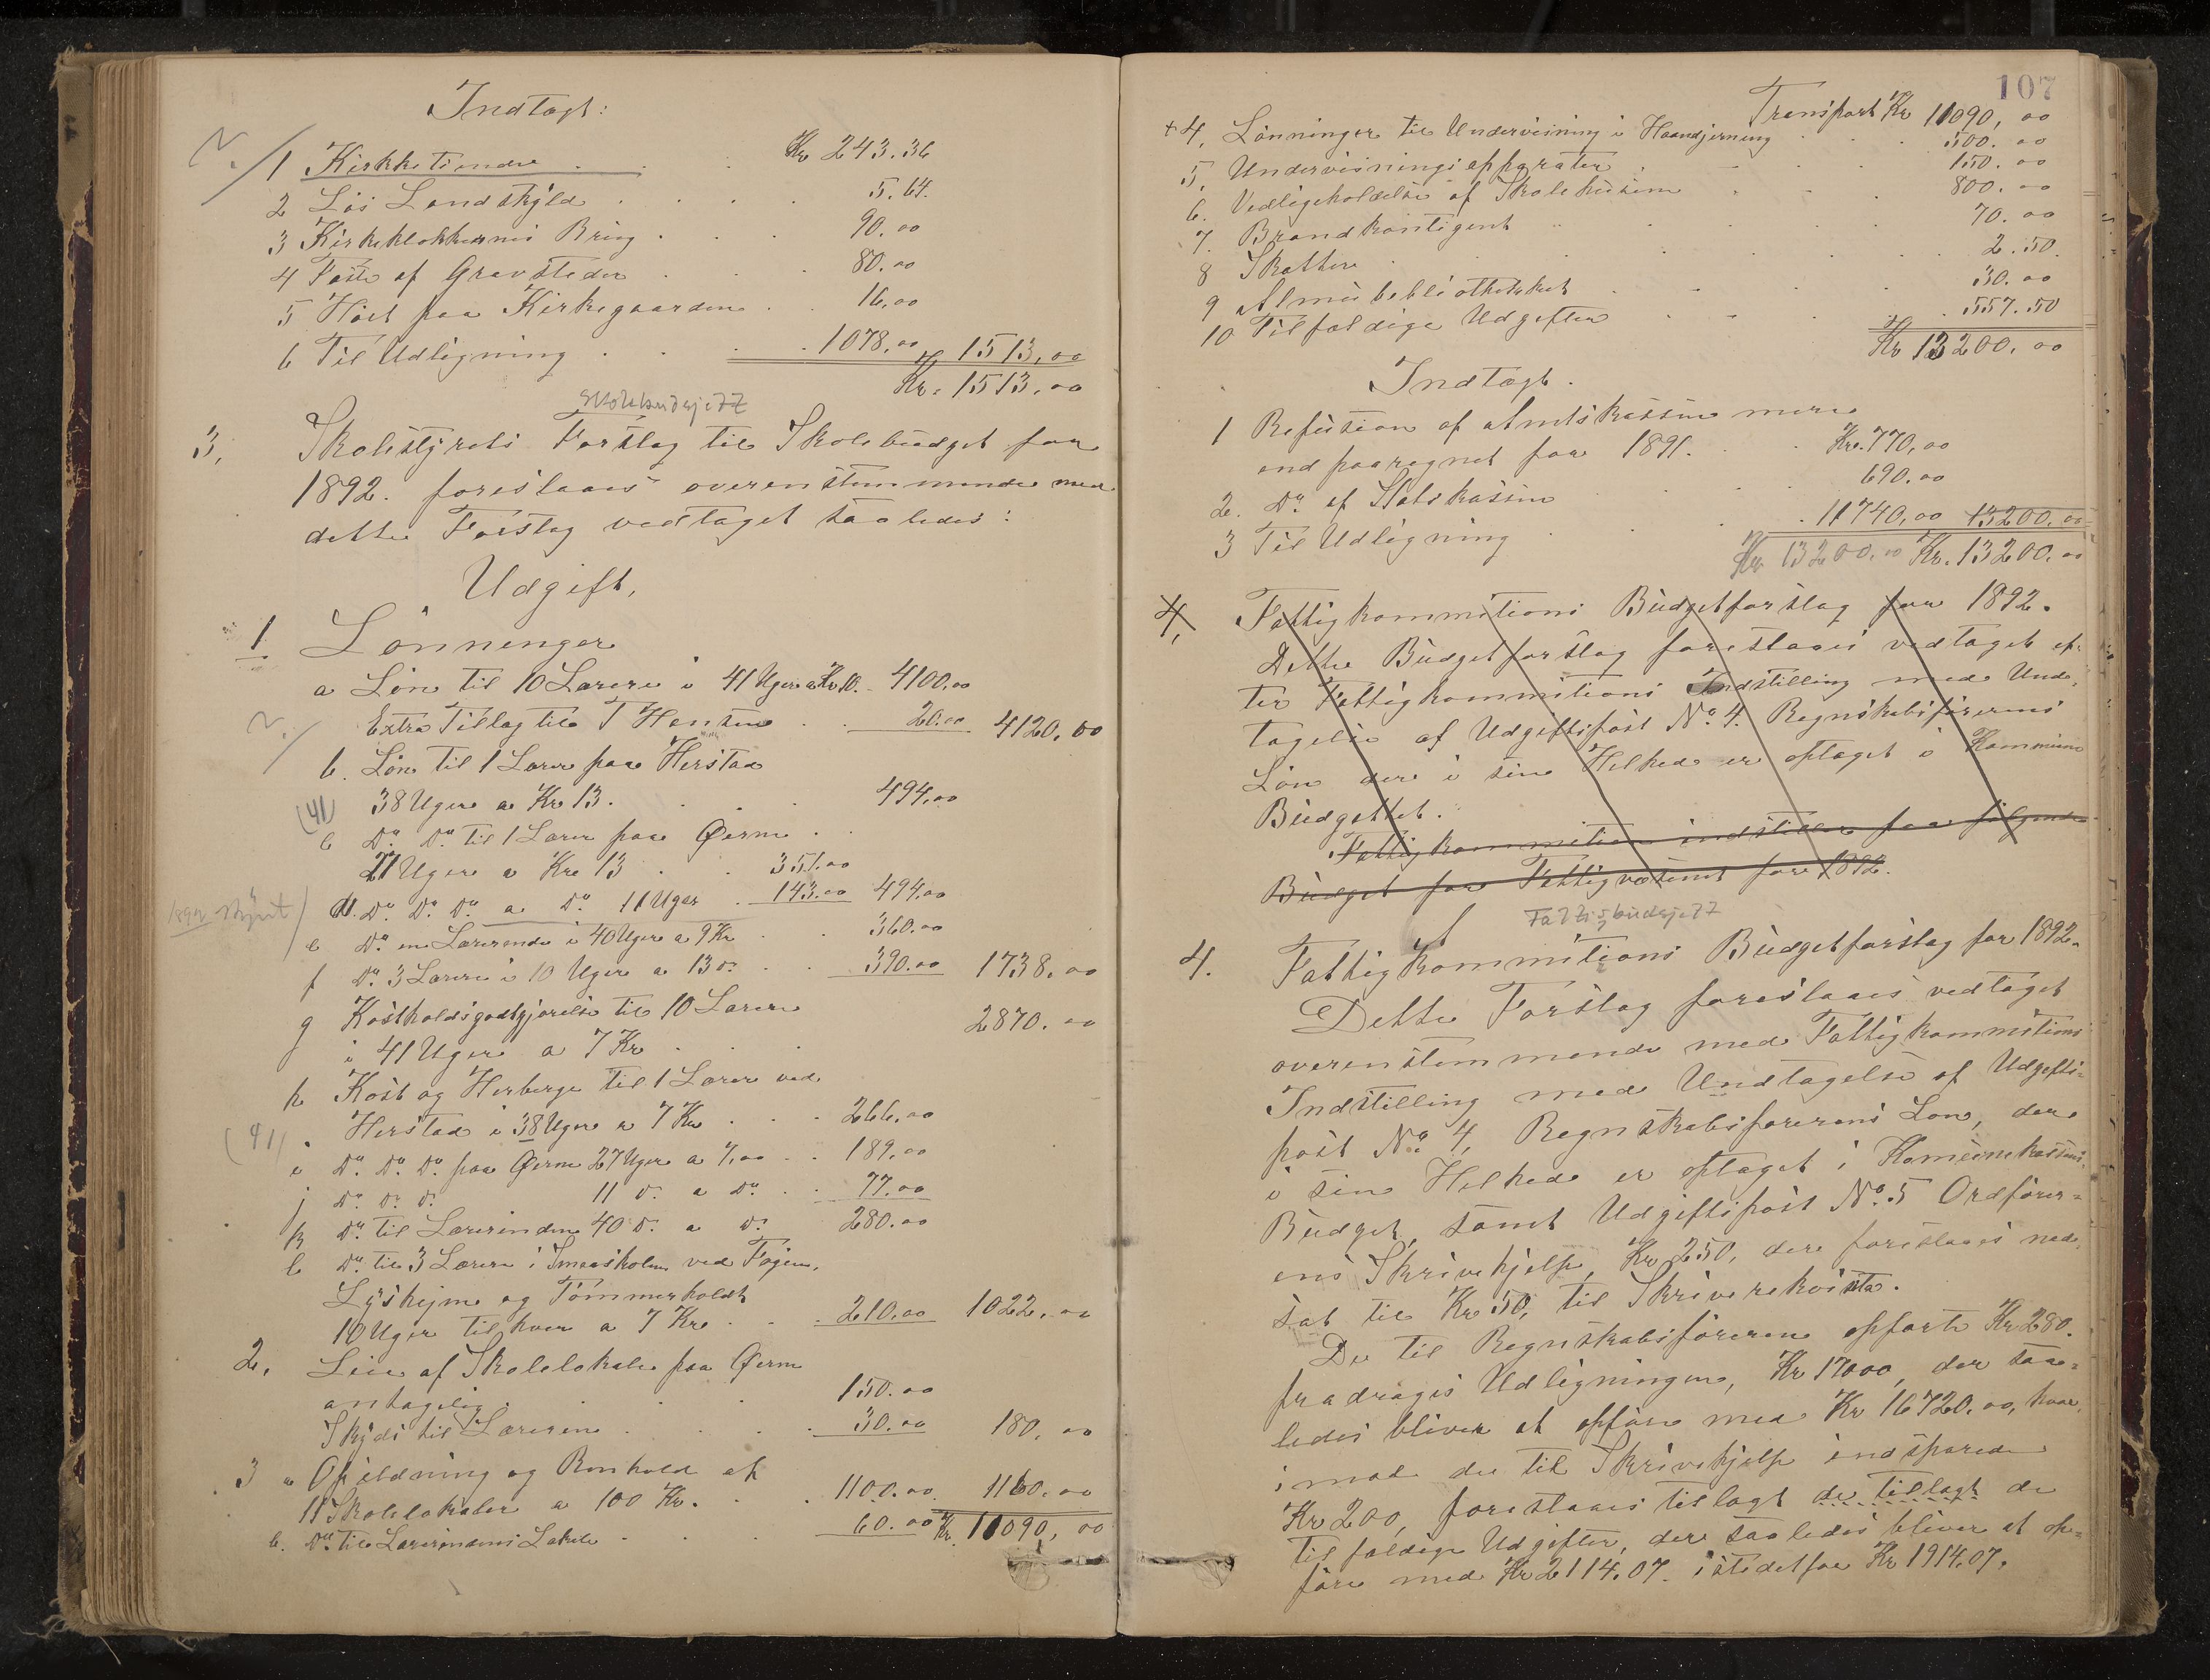 Indtægt:
1 Kirketiende . . . Kr 243.36
2 Løs Landskyld . . . . 5.64.
3 Kirkeklokkernes Bring . . . 90.00
4 Fæste af Gravsteder . . . 80.00
5 Høst paa Kirkegaarden . . 16.00
6 Til Udligning . . . . 1078.00 1513,00
Kr. 1513.00
Skolebudsjett
3, Skolestyrets Forslag til Skolebudget for
1892. foreslaaes overenstemmende med
dette Forslag vedtaget saaledes:
Udgift,
1 Lønninger
a Løn til 10 Lærere i 41 Uger a Kr 10. 4100.00
Extra Tillæg til T Hansen . . 20.00 4120.00
b. Løn til 1 Lærer paa Herstad
(41) 38 Uger a Kr 13. . . . 494.00
c Do Do til 1 Lærer paa Øerne .
27 Uger a Kr 13 . . 351.00
d. Do Do Do a Do 11 Uger . 143.00 494.00
e Do en Lærerinde i 40 Uger a 9 Kr . . 360.00
f Do 3 Lærere i 10 Uger a 13 Do . . 390.00 1738.00
g Kostholdsgodtgjørelse til 10 Lærere
i 41 Uger a 7 Kr . . . 2870.00
h Kost og Herberge til 1 Lærer ved
(41) Herstad i 38 Uger a 7 Kr . . . 266.00
i Do Do Do paa Øerne 27 Uger a 7,00 . . 189.00
j Do Do Do 11 Do a Do . . 77.00
k Do til Lærerinden 40 Do a Do 280.00
l Do til 3 Lærere i Smaaskolen ved
Lyshejm og Tömmerholdt
10 Uger til hver a 7 Kr . . . 210.00 1022.00
2. Leie af Skolelokale paa Øerne
antagelig . . . . 150.00
Skyds til Læreren . . . . 30.00 180.00
3 a Opildning og Renhold af
11 Skolelokaler a 100 Kr. . . 1100.00. 1160.00
b. Do til Lærerindens Lokale . . . 60.00 Kr. 11090,00
107
Transport Kr 11090,00
+4, Lønninger til Undervisning i Haandgjerning . . . 500.00
5, Undervisningsapparater . . . 150.00
6. Vedligeholdelse af Skolehusene . . . 800.00
7. Brandkontigent . . . . 70.00
8 Skatter . . . . . 2.50.
9 Almuebibliotheket . . . 30.00
10 Tilfældige Udgifter . . . 557.50
Kr 13200.00
Indtægt.
1 Refusion af Amtskassen mere
end paaregnet for 1891. . . Kr. 770,00
2. Do af Statskassen . . . 690.00
3 Til Udligning . . . 11740,00 13200.00
Kr 13200.00 Kr. 13200.00
4, Fattigkommitions Budgetforslag for 1892.
Dette Budgetforslag foreslaaes vedtaget ef-
ter Fattigkommitions Indstilling med Und-
tagelse af Udgiftspost No. 4. Regnskabsførerens
Løn der i sin Helhed er optaget i Kommune
Budgettet.
Fattigkommition indstiller for følgende
Budget for Fattigvæsenet for 1892.
Fattigbudsjett
4. Fattigkommitions Budgetforslag for 1892.
Dette Forslag foreslaaes vedtaget
overenstemmende med Fattigkommitions
Indstilling med Undtagelse af Udgifts-
post No 4, Regnskabsførerens Løn, der
i sin Helhed er optaget i Komunekassens
Budget, samt Udgiftspost No. 5 Ordfører-
ens Skrivehjelp, Kr 250, der foreslaaes ned-
sat til Kr 50, til Skriverekvisita.
De til Regnskabsføreren opførte Kr 280.
fradrages Udligningen, Kr 17000, der saa-
ledes bliver at opføre med Kr 16720.00, hvor-
imod de til Skrivehjelp indsparede
Kr 200, foreslaaes tillagt de tillagt de
tilfældige Udgifter, der saaledes bliver at op-
føre med Kr 2114.07. istedetfor Kr 1914.07.